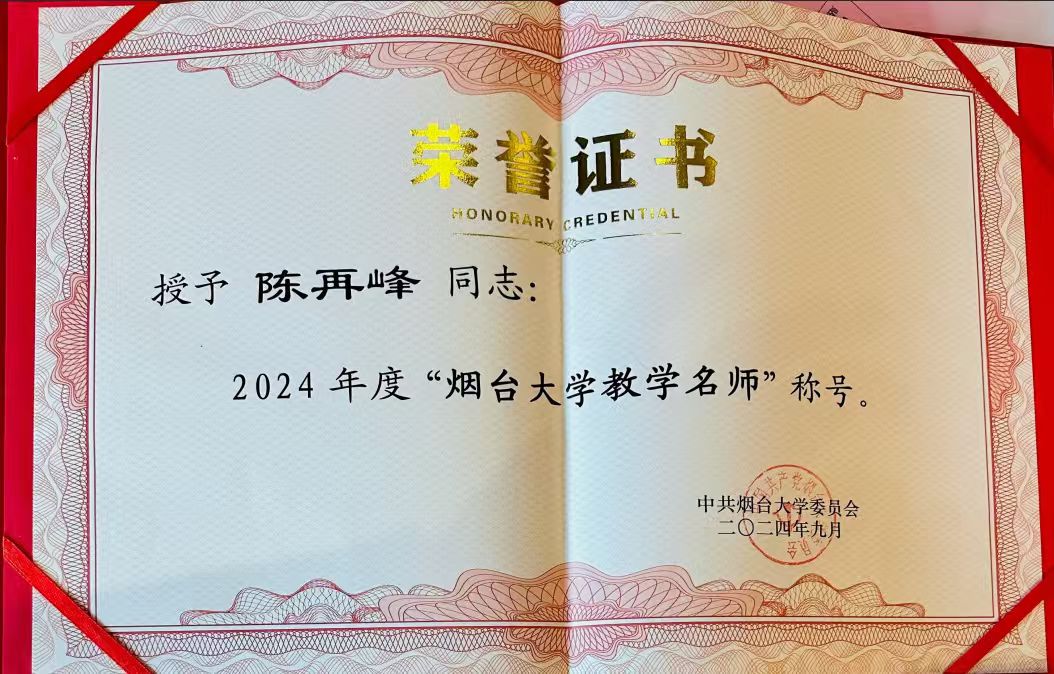 荣誉证书
HONORARY CREDENTIAL
授予 陈再峰 同志：
2024 年度“烟台大学教学名师”称号。
中共烟台大学委员会
二〇二四年九月